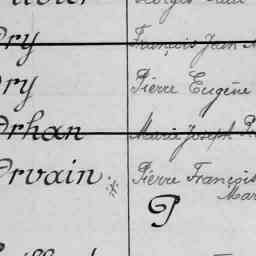 Ory François Jean
Ory Pierre Eugène
Orhan Marie Joseph
Orvain Pierre François
Mar
P